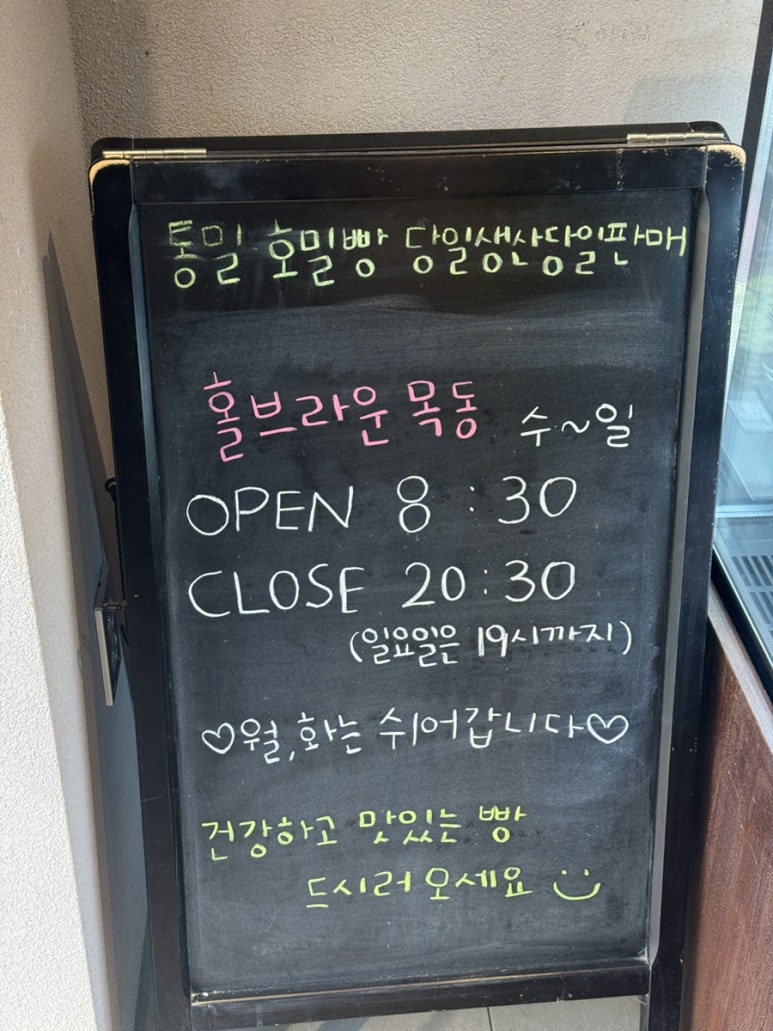 통밀 호밀빵 당일생산당일판매
홀브라운 목동 수~일
OPEN 8:30
CLOSE 20:30
(일요일은 19시까지)
♡월,화는 쉬어갑니다♡
건강하고 맛있는 빵
드시러 오세요